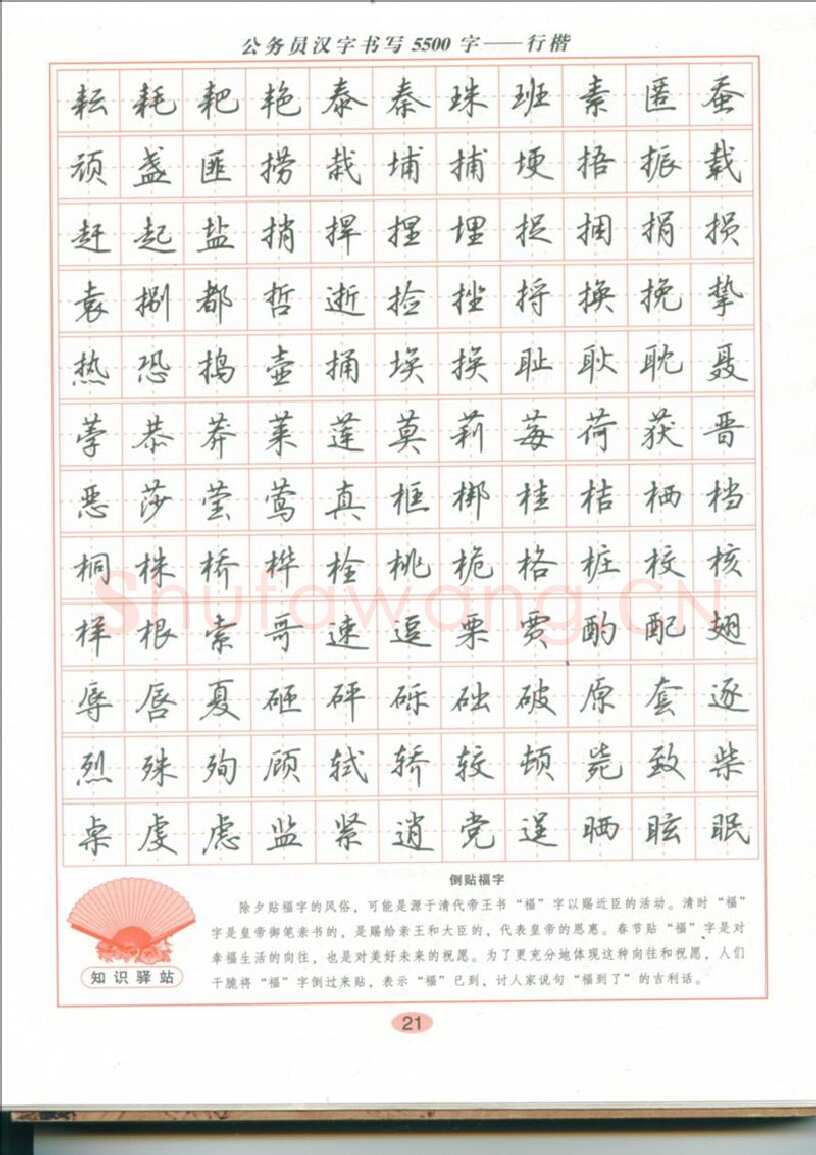 公务员汉字书写5500字——行楷
耘耗耙艳泰秦珠班素匿蚕
顽盏匪捞栽埔捕埂捂振载
赶起盐捎捍捏埋捉捆捐损
袁捌都哲逝捡挫捋换挽挚
热恐捣壶捅埃挨耻耿耽聂
莩恭莽莱莲莫莉莓荷获晋
恶莎莹莺真框梆桂桔栖档
桐株桥桦栓桃桅格桩校核
样根索哥速逗栗贾酌配翅
辱唇夏砸砰砾础破原套逐
烈殊殉顾轼轿较顿毙致柴
桌虔虑监紧逍党逞晒眩眠
Shufawang.CN
倒贴福字
除夕贴福字的风俗，可能是源于清代帝王书“福”字以赐近臣的活动。清时“福”
字是皇帝御笔亲书的，是赐给亲王和大臣的，代表皇帝的恩惠。春节贴“福”字是对
幸福生活的向往，也是对美好未来的祝愿。为了更充分地体现这种向往和祝愿，人们
干脆将“福”字倒过来贴，表示“福”已到，讨人家说句“福到了”的吉利话。
知识驿站
21